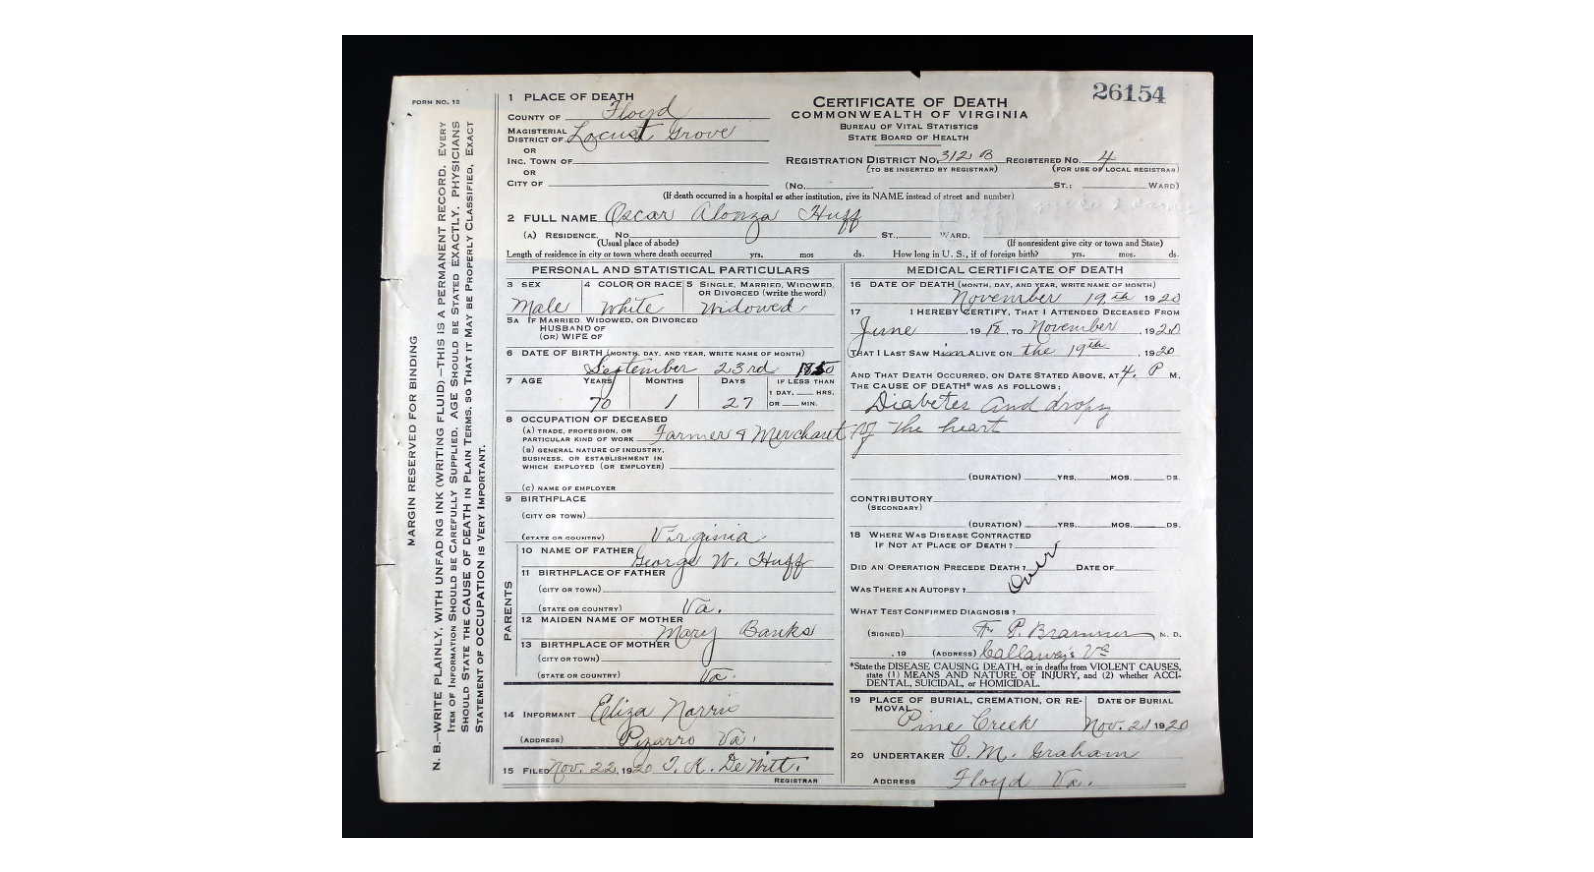 26154
FORM NO. 12
MARGIN RESERVED FOR BINDING
N. B.—WRITE PLAINLY, WITH UNFADING INK (WRITING FLUID)—THIS IS A PERMANENT RECORD. EVERY
ITEM OF INFORMATION SHOULD BE CAREFULLY SUPPLIED. AGE SHOULD BE STATED EXACTLY. PHYSICIANS
SHOULD STATE THE CAUSE OF DEATH IN PLAIN TERMS, SO THAT IT MAY BE PROPERLY CLASSIFIED. EXACT
STATEMENT OF OCCUPATION IS VERY IMPORTANT.
1 PLACE OF DEATH
COUNTY OF Floyd
MAGISTERIAL DISTRICT OF Locust Grove
OR
INC. TOWN OF
OR
CITY OF
CERTIFICATE OF DEATH
COMMONWEALTH OF VIRGINIA
BUREAU OF VITAL STATISTICS
STATE BOARD OF HEALTH
REGISTRATION DISTRICT NO. 312 B REGISTERED NO. 4
(TO BE INSERTED BY REGISTRAR) (FOR USE OF LOCAL REGISTRAR)
(No. ST.; WARD)
(If death occurred in a hospital or other institution, give its NAME instead of street and number)
2 FULL NAME Oscar Alonza Huff
(A) RESIDENCE. No. ST., WARD.
(Usual place of abode) (If nonresident give city or town and State)
Length of residence in city or town where death occurred yrs. mos ds. How long in U. S., if of foreign birth? yrs. mos. ds.
PERSONAL AND STATISTICAL PARTICULARS
3 SEX 4 COLOR OR RACE 5 SINGLE, MARRIED, WIDOWED,
OR DIVORCED (write the word)
Male White Widowed
5A IF MARRIED, WIDOWED, OR DIVORCED
HUSBAND OF
(OR) WIFE OF
6 DATE OF BIRTH (MONTH, DAY, AND YEAR, WRITE NAME OF MONTH)
September 23rd 1850
7 AGE YEARS MONTHS DAYS IF LESS THAN
1 DAY, HRS.
70 1 27 OR MIN.
8 OCCUPATION OF DECEASED
(A) TRADE, PROFESSION, OR
PARTICULAR KIND OF WORK Farmer & Merchant
(B) GENERAL NATURE OF INDUSTRY,
BUSINESS, OR ESTABLISHMENT IN
WHICH EMPLOYED (OR EMPLOYER)
(C) NAME OF EMPLOYER
9 BIRTHPLACE
(CITY OR TOWN)
(STATE OR COUNTRY) Virginia
PARENTS
10 NAME OF FATHER George W. Huff
11 BIRTHPLACE OF FATHER
(CITY OR TOWN)
(STATE OR COUNTRY) Va.
12 MAIDEN NAME OF MOTHER Mary Banks
13 BIRTHPLACE OF MOTHER
(CITY OR TOWN)
(STATE OR COUNTRY) Va.
14 INFORMANT Eliza Norris
(ADDRESS) Pizarro Va.
15 FILED Nov. 22, 1920 T. K. DeWitt.
REGISTRAR
MEDICAL CERTIFICATE OF DEATH
16 DATE OF DEATH (MONTH, DAY, AND YEAR, WRITE NAME OF MONTH)
November 19th 1920
17 I HEREBY CERTIFY, THAT I ATTENDED DECEASED FROM
June 1918, TO November, 1920
THAT I LAST SAW Him ALIVE ON the 19th, 1920
AND THAT DEATH OCCURRED, ON DATE STATED ABOVE, AT 4. P M.
THE CAUSE OF DEATH* WAS AS FOLLOWS:
Diabetes and dropsy
of the heart
(DURATION) YRS. MOS. DS.
CONTRIBUTORY
(SECONDARY)
(DURATION) YRS. MOS. DS.
18 WHERE WAS DISEASE CONTRACTED
IF NOT AT PLACE OF DEATH?
DID AN OPERATION PRECEDE DEATH? DATE OF
Over
WAS THERE AN AUTOPSY?
WHAT TEST CONFIRMED DIAGNOSIS?
(SIGNED) F. P. Brammer M. D.
, 19 (ADDRESS) Callaways Va
*State the DISEASE CAUSING DEATH, or in deaths from VIOLENT CAUSES,
state (1) MEANS AND NATURE OF INJURY, and (2) whether ACCI-
DENTAL, SUICIDAL, or HOMICIDAL.
19 PLACE OF BURIAL, CREMATION, OR RE- DATE OF BURIAL
MOVAL Pine Creek Nov. 21 1920
20 UNDERTAKER C. M. Graham
ADDRESS Floyd Va.